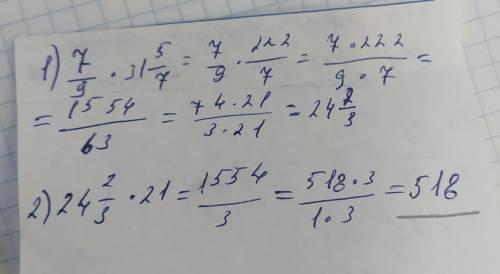 1) 7/9 · 31 5/7 = 7/9 · 222/7 = 7·222/9·7 =
= 1554/63 = 74·21/3·21 = 24 2/3
2) 24 2/3 · 21 = 1554/3 = 518·3/1·3 = 518